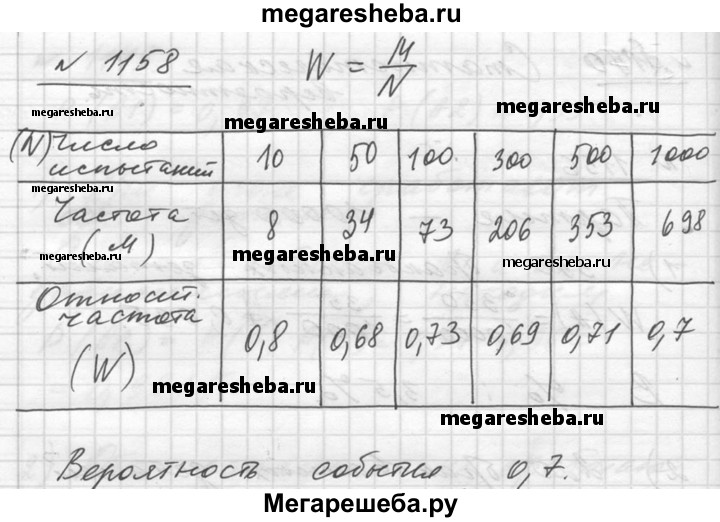 megaresheba.ru
N 1158 W = M/N
megaresheba.ru
megaresheba.ru
megaresheba.ru
(N) Число испытаний 10 50 100 300 500 1000
Частота (M) 8 34 73 206 353 698
megaresheba.ru
megaresheba.ru
megaresheba.ru
Относит. частота (W) 0,8 0,68 0,73 0,69 0,71 0,7
megaresheba.ru
megaresheba.ru
Вероятность события 0,7.
Мегарешеба.ру